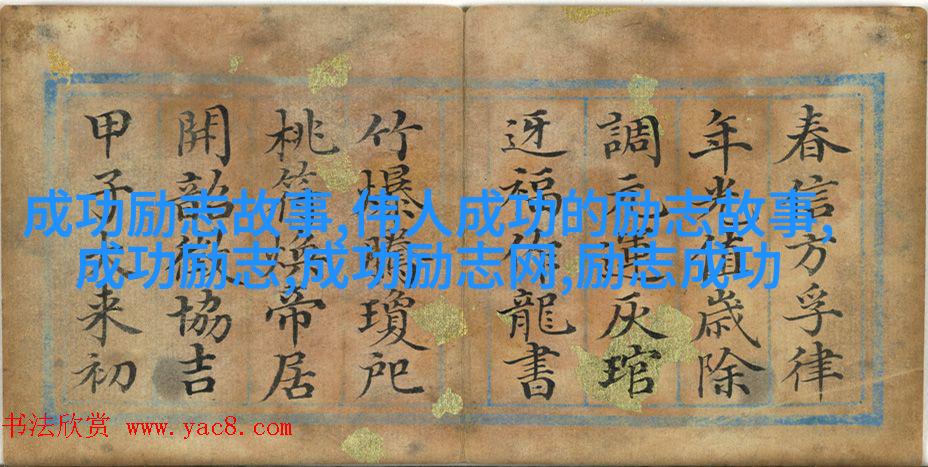 春信方孚律
年光值歲除
調元運灰琯
迓福龍書
竹爆瓊
桃符煥帝居
開韶徵協吉
甲子来初
成功励志故事,伟人成功的励志故事,
成功励志,成功励志网,励志成功
书法欣赏 www.yac8.com